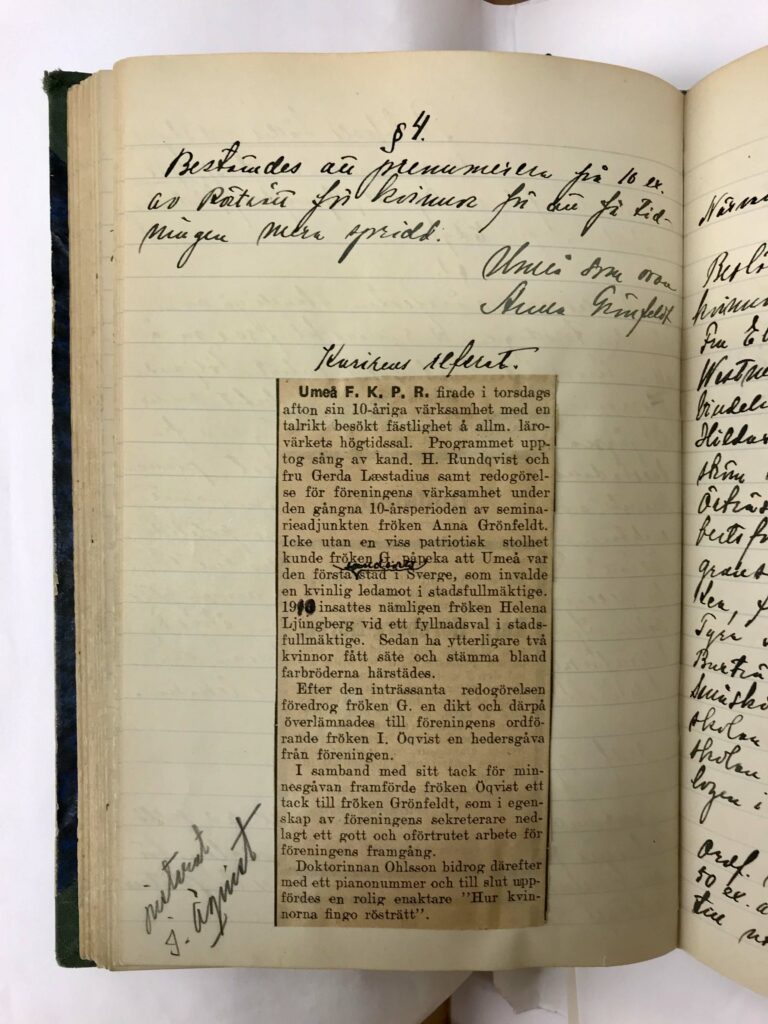 § 4.
Bestämdes att prenumerera på 10 ex.
av Rösträtt för kvinnor för att få tid-
ningen mera spridd.
Umeå som ovan
Anna Grönfeldt
Kurirens referat.
Umeå F. K. P. R. firade i torsdags
afton sin 10-åriga värksamhet med en
talrikt besökt fästlighet å allm. läro-
värkets högtidssal. Programmet upp-
tog sång av kand. H. Rundqvist och
fru Gerda Læstadius samt redogörel-
se för föreningens värksamhet under
den gångna 10-årsperioden av semina-
rieadjunkten fröken Anna Grönfeldt.
Icke utan en viss patriotisk stolhet
kunde fröken G. påpeka att Umeå var
landsorts
den första stad i Sverge, som invalde
en kvinlig ledamot i stadsfullmäktige.
1910 insattes nämligen fröken Helena
Ljungberg vid ett fyllnadsval i stads-
fullmäktige. Sedan ha ytterligare två
kvinnor fått säte och stämma bland
farbröderna härstädes.
Efter den inträssanta redogörelsen
föredrog fröken G. en dikt och därpå
överlämnades till föreningens ordfö-
rande fröken I. Öqvist en hedersgåva
från föreningen.
I samband med sitt tack för min-
nesgåvan framförde fröken Öqvist ett
tack till fröken Grönfeldt, som i egen-
skap av föreningens sekreterare ned-
lagt ett gott och oförtrutet arbete för
föreningens framgång.
Doktorinnan Ohlsson bidrog därefter
med ett pianonummer och till slut upp-
fördes en rolig enaktare "Hur kvin-
norna fingo rösträtt".
justerat
I. Öqvist
Fru
skolan
skolan
Ordf.
50 ex.